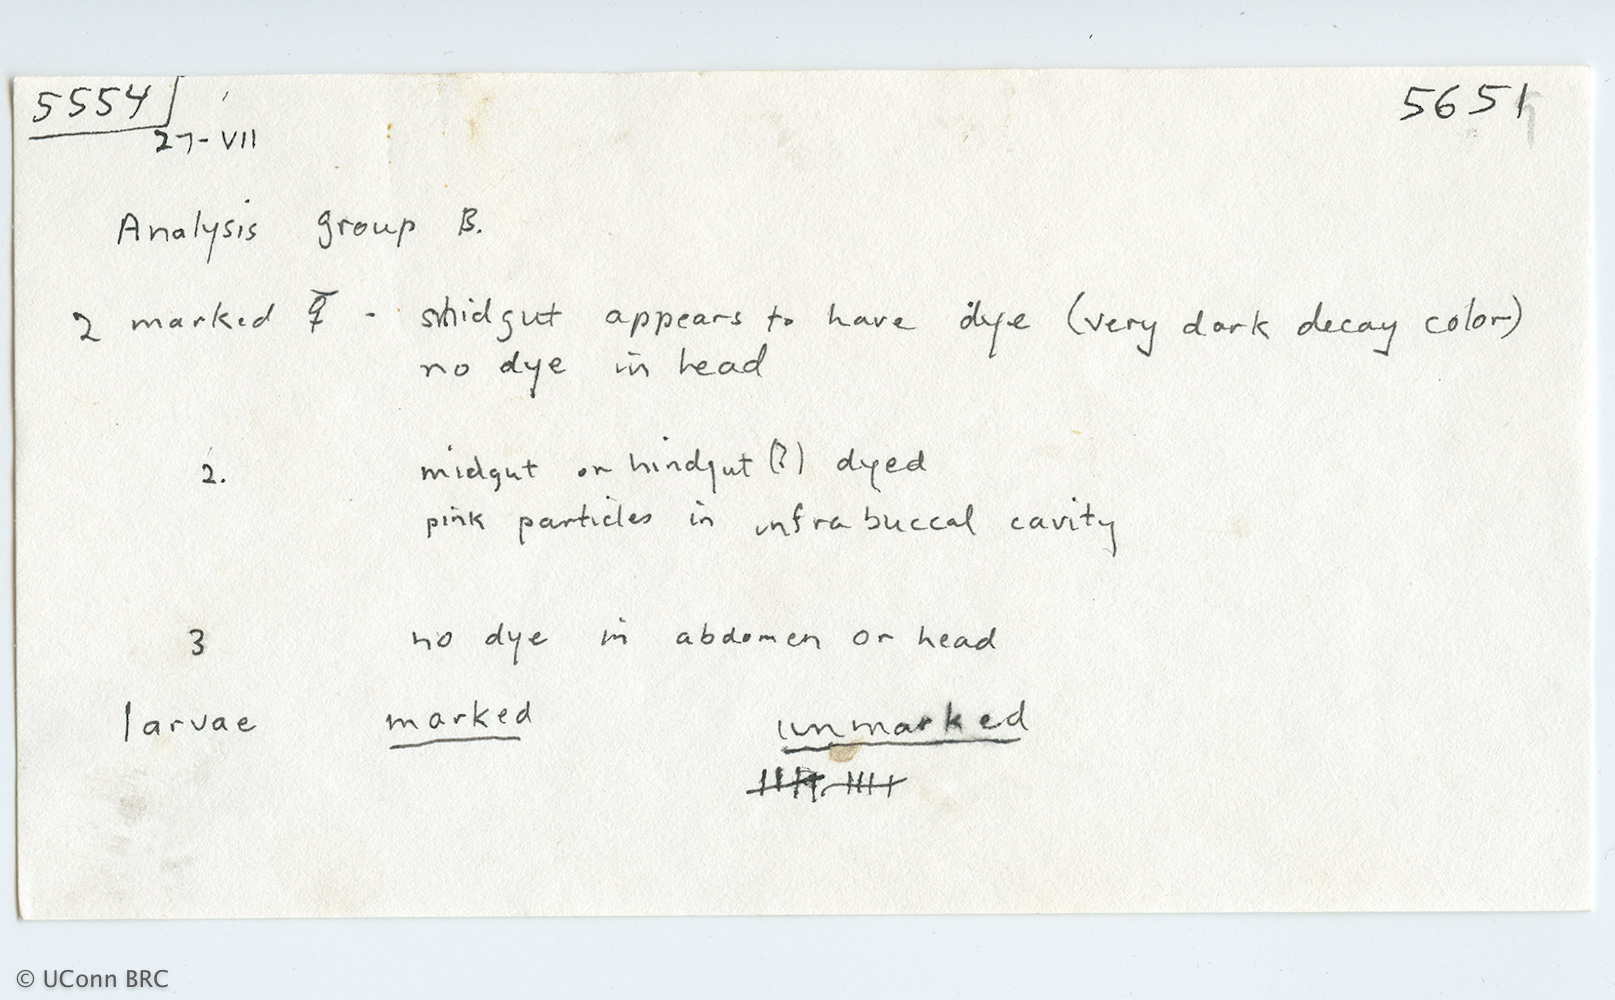 5554 5651
27-VII
Analysis group B.
2 marked ☿ - midgut appears to have dye (very dark decay color)
no dye in head
2. midgut or hindgut (?) dyed
pink particles in infrabuccal cavity
3 no dye in abdomen or head
larvae marked unmarked
© UConn BRC